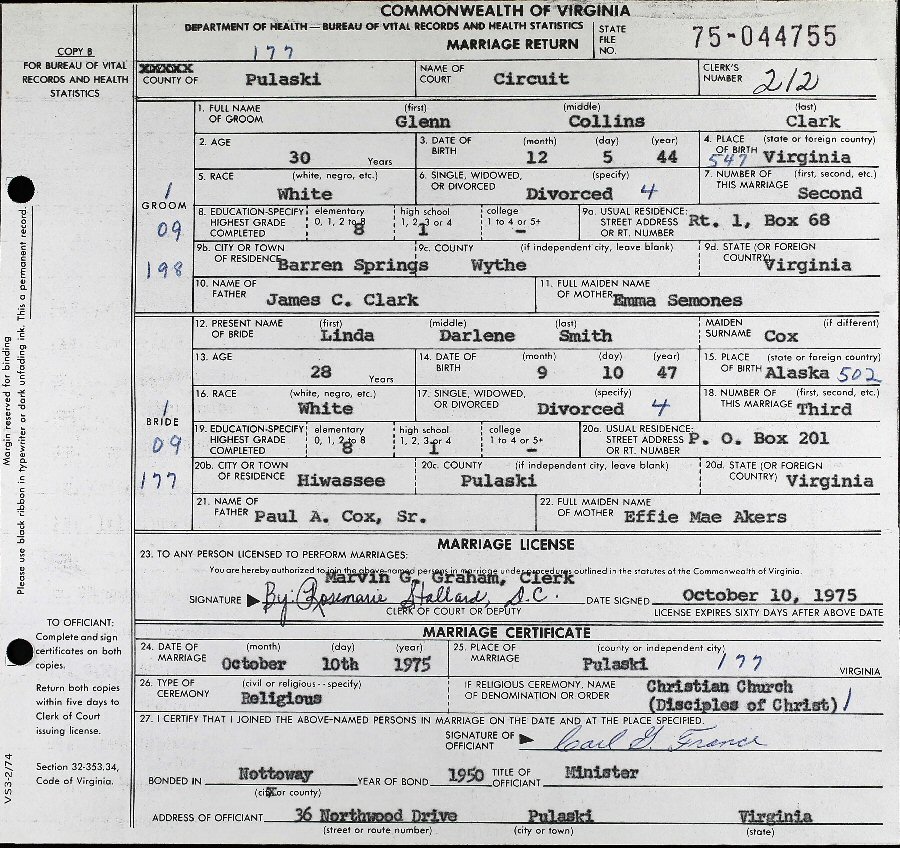 COMMONWEALTH OF VIRGINIA
DEPARTMENT OF HEALTH — BUREAU OF VITAL RECORDS AND HEALTH STATISTICS
177 MARRIAGE RETURN
STATE FILE NO. 75-044755
COPY B
FOR BUREAU OF VITAL
RECORDS AND HEALTH
STATISTICS
COUNTY OF Pulaski NAME OF COURT Circuit CLERK'S NUMBER 212
1. FULL NAME OF GROOM (first) Glenn (middle) Collins (last) Clark
2. AGE 30 Years 3. DATE OF BIRTH (month) 12 (day) 5 (year) 44 4. PLACE OF BIRTH (state or foreign country) 547 Virginia
5. RACE (white, negro, etc.) White 6. SINGLE, WIDOWED, OR DIVORCED (specify) Divorced 4 7. NUMBER OF THIS MARRIAGE (first, second, etc.) Second
1
GROOM
09
198
8. EDUCATION-SPECIFY HIGHEST GRADE COMPLETED elementary 0, 1, 2 to 8 8 high school 1, 2, 3 or 4 1 college 1 to 4 or 5+ – 9a. USUAL RESIDENCE: STREET ADDRESS OR RT. NUMBER Rt. 1, Box 68
9b. CITY OR TOWN OF RESIDENCE Barren Springs 9c. COUNTY (if independent city, leave blank) Wythe 9d. STATE (OR FOREIGN COUNTRY) Virginia
10. NAME OF FATHER James C. Clark 11. FULL MAIDEN NAME OF MOTHER Emma Semones
12. PRESENT NAME OF BRIDE (first) Linda (middle) Darlene (last) Smith MAIDEN SURNAME (if different) Cox
13. AGE 28 Years 14. DATE OF BIRTH (month) 9 (day) 10 (year) 47 15. PLACE OF BIRTH (state or foreign country) Alaska 502
16. RACE (white, negro, etc.) White 17. SINGLE, WIDOWED, OR DIVORCED (specify) Divorced 4 18. NUMBER OF THIS MARRIAGE (first, second, etc.) Third
1
BRIDE
09
177
19. EDUCATION-SPECIFY HIGHEST GRADE COMPLETED elementary 0, 1, 2 to 8 8 high school 1, 2, 3 or 4 1 college 1 to 4 or 5+ – 20a. USUAL RESIDENCE: STREET ADDRESS OR RT. NUMBER P. O. Box 201
20b. CITY OR TOWN OF RESIDENCE Hiwassee 20c. COUNTY (if independent city, leave blank) Pulaski 20d. STATE (OR FOREIGN COUNTRY) Virginia
21. NAME OF FATHER Paul A. Cox, Sr. 22. FULL MAIDEN NAME OF MOTHER Effie Mae Akers
MARRIAGE LICENSE
23. TO ANY PERSON LICENSED TO PERFORM MARRIAGES:
You are hereby authorized to join the above-named persons in marriage under procedures outlined in the statutes of the Commonwealth of Virginia.
Marvin G. Graham, Clerk
SIGNATURE By: Rosemarie Stallard, D.C. DATE SIGNED October 10, 1975
CLERK OF COURT OR DEPUTY LICENSE EXPIRES SIXTY DAYS AFTER ABOVE DATE
MARRIAGE CERTIFICATE
24. DATE OF MARRIAGE (month) October (day) 10th (year) 1975 25. PLACE OF MARRIAGE (county or independent city) Pulaski 177 VIRGINIA
26. TYPE OF CEREMONY (civil or religious--specify) Religious IF RELIGIOUS CEREMONY, NAME OF DENOMINATION OR ORDER Christian Church (Disciples of Christ) 1
27. I CERTIFY THAT I JOINED THE ABOVE-NAMED PERSONS IN MARRIAGE ON THE DATE AND AT THE PLACE SPECIFIED.
SIGNATURE OF OFFICIANT Carl G. France
BONDED IN Nottoway (city or county) YEAR OF BOND 1950 TITLE OF OFFICIANT Minister
ADDRESS OF OFFICIANT 36 Northwood Drive Pulaski Virginia
(street or route number) (city or town) (state)
Margin reserved for binding
Please use black ribbon in typewriter or dark unfading ink. This a permanent record.
TO OFFICIANT:
Complete and sign
certificates on both
copies.
Return both copies
within five days to
Clerk of Court
issuing license.
Section 32-353.34,
Code of Virginia.
VS3-2/74